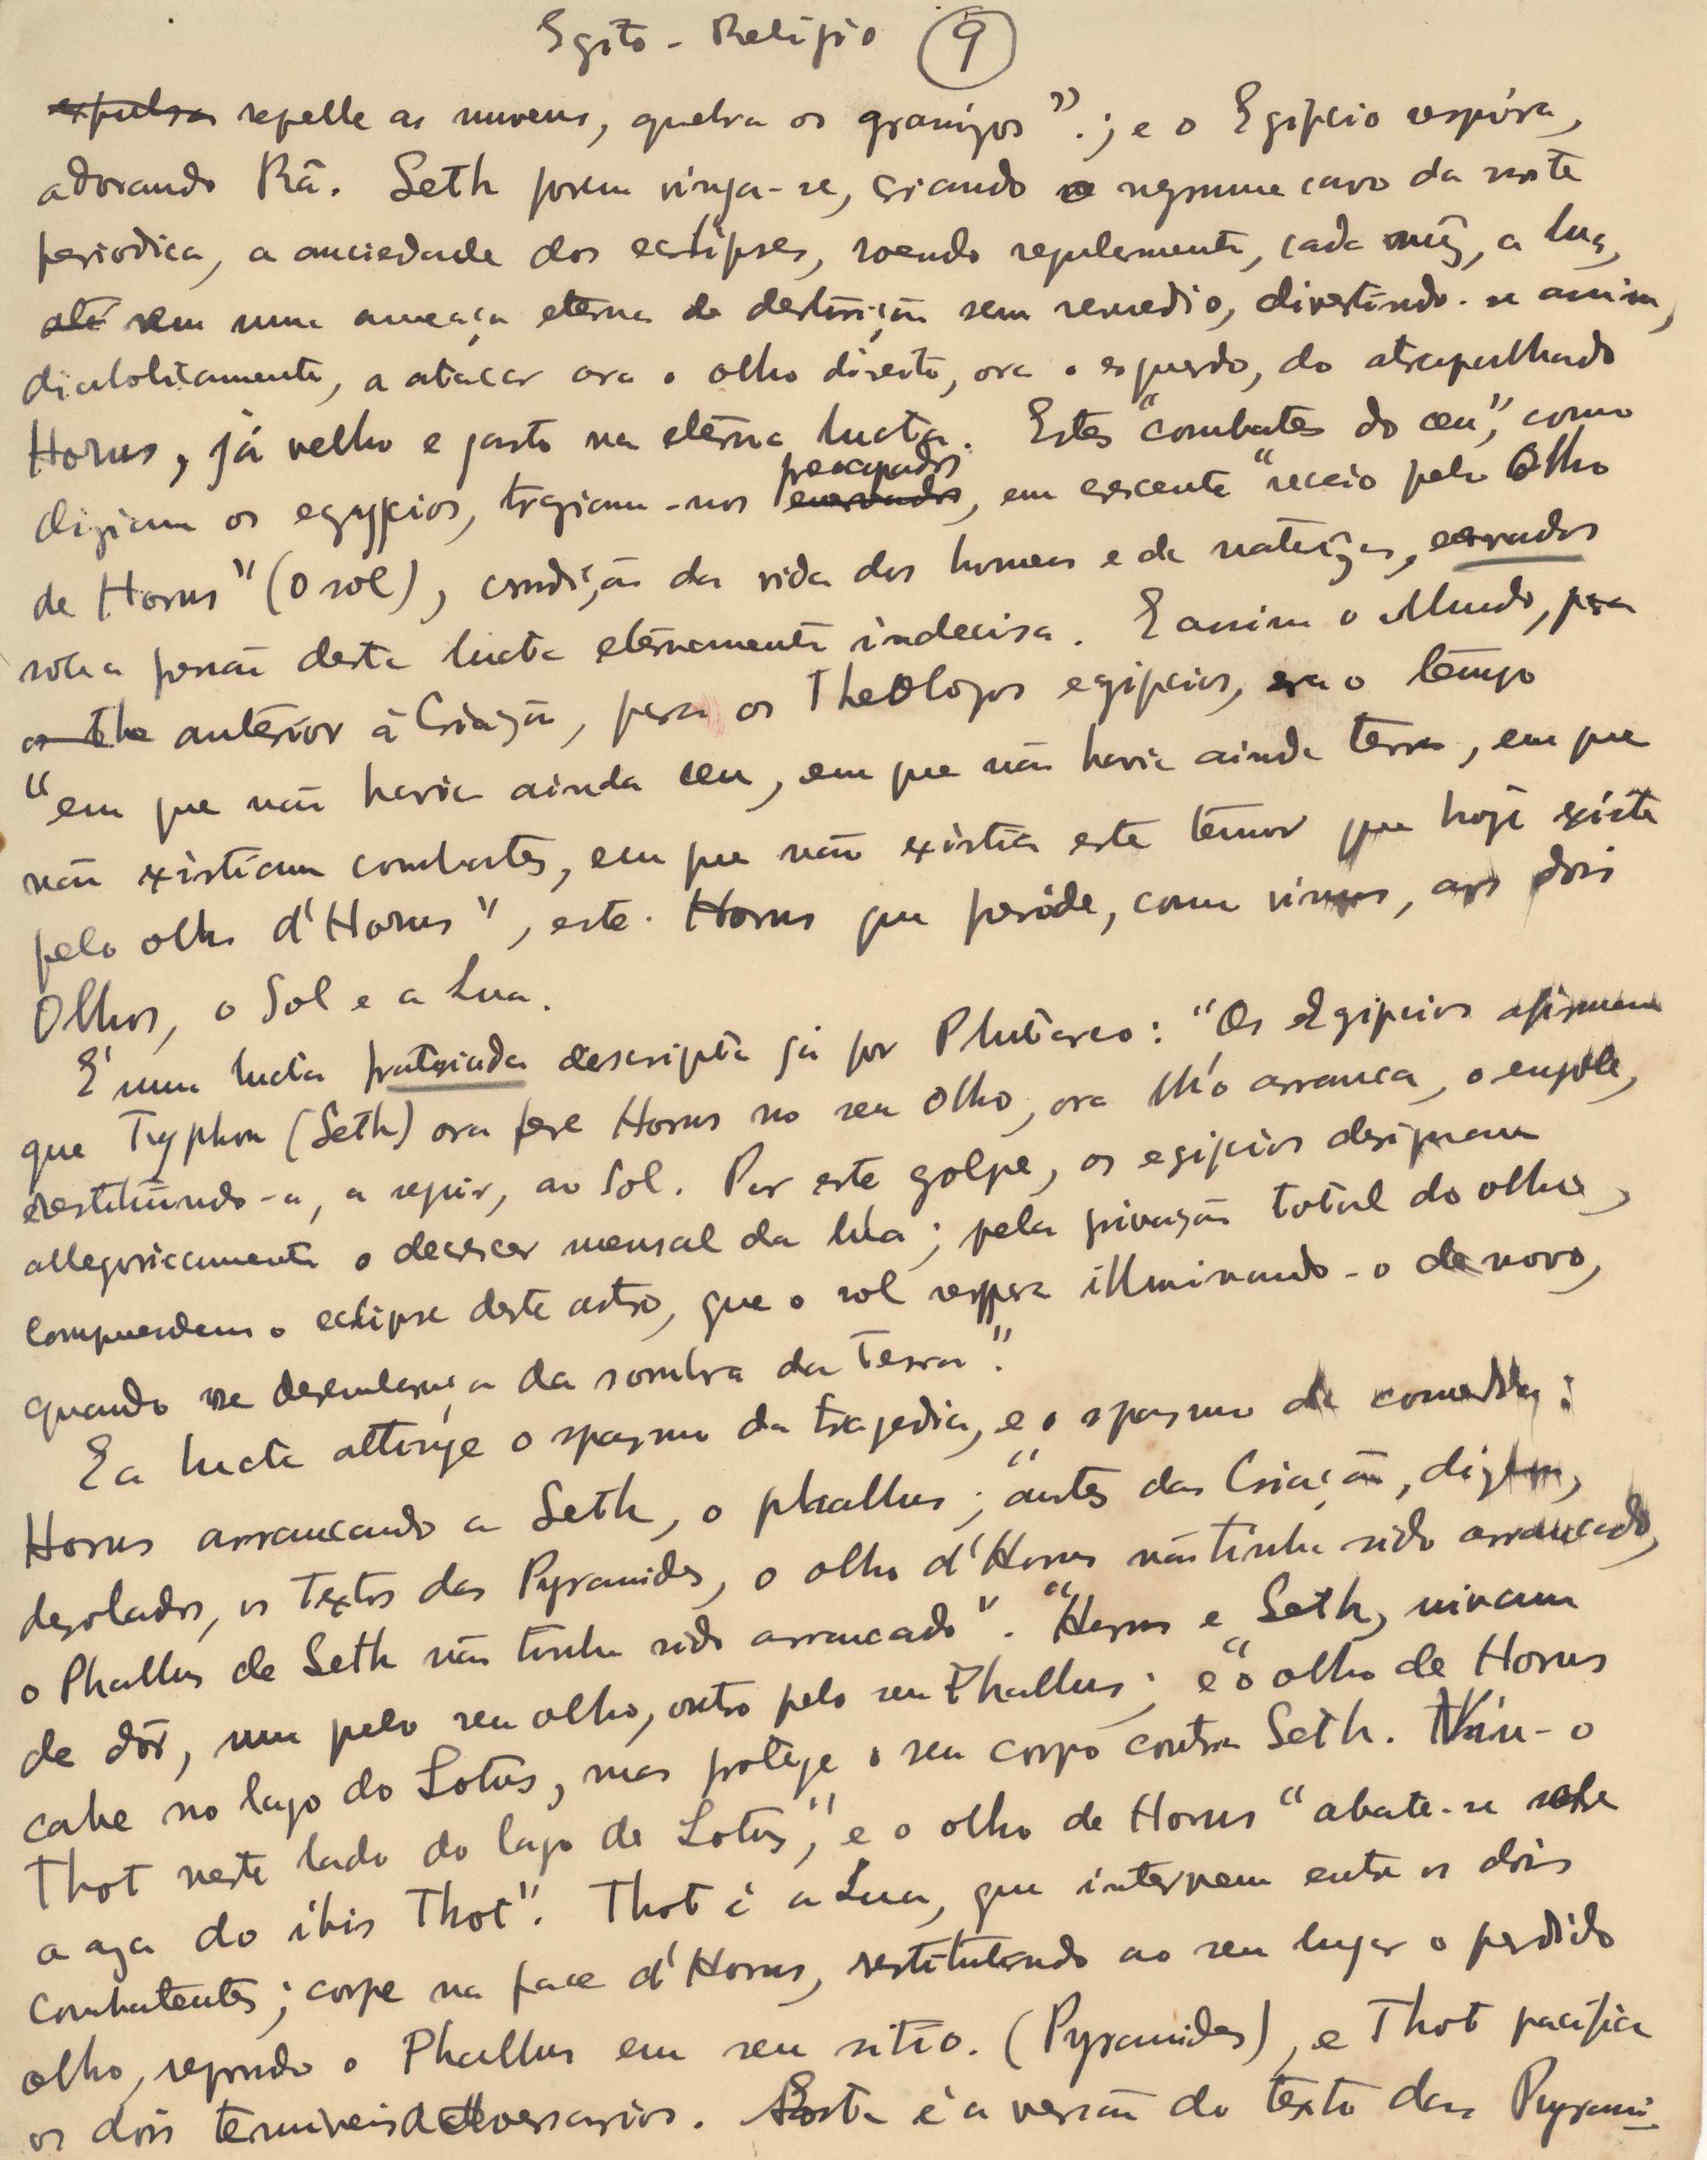 Egito - Religião 9
expulsa repelle as nuvens, quebra os granizos".; e o Egipcio respira,
adorando Râ. Seth porem vinga-se, criando o negrume cavo da noite
periodica, a anciedade dos eclipses, roendo regularmente, cada mêz, a lua,
até em uma ameaça eterna de destruição sem remedio, divertindo-se assim,
diabolicamente, a atacar ora o olho direito, ora o esquerdo, do atrapalhado
Horus, já velho e gasto na eterna lucta. Estes "combates do ceu", como
diziam os egypcios, traziam-nos preocupados, em crescente "receio pelo Olho
de Horus" (o sol), condição da vida dos homens e da natureza,
sob a pressão desta lucta eternamente indecisa. E assim o Mundo, para
os The anterior à Criação, para os Theologos egipcios, era o tempo
"em que não havia ainda ceu, em que não havia ainda terra, em que
não existiam combates, em que não existia este temor que hoje existe
pelo olho d'Horus", este Horus que preside, como vimos, aos dois
Olhos, o Sol e a Lua.
É uma lucta descripta já por Plutarco: "Os Egipcios afirmam
que Typhon (Seth) ora fere Horus no seu Olho, ora lh'o arranca, o engole,
restituindo-o, a seguir, ao Sol. Por este golpe, os egipcios designam
allegoricamente o decrescer mensal da lúa; pela privação total do olho,
comprendem o eclipse deste astro, que o sol repara illuminando-o de novo,
quando se desembaraça da sombra da Terra".
E a lucta attinge o espasmo da tragedia, e o espasmo da comedia:
Horus arrancando a Seth, o phallus; "antes da Criação, dizem,
desolados, os Textos das Pyramides, o olho d'Horus não tinha sido arrancado,
o Phallus de Seth não tinha sido arrancado". "Horus e Seth, uivam
de dôr, um pelo seu olho, outro pelo seu Phallus; e "o olho de Horus
cahe no lago do Lotus, mas protege o seu corpo contra Seth. Viu-o
Thot neste lado do lago de Lotus", e o olho de Horus "abate-se sobre
a aza do ibis Thot". Thot é a Lua, que intervem entre os dois
combatentes; cospe na face d'Horus, restituindo ao seu lugar o perdido
olho, repondo o Phallus em seu sitio. (Pyramides), e Thot pacifica
os dois terriveis adversarios. Esta é a versão do texto das Pyrami-